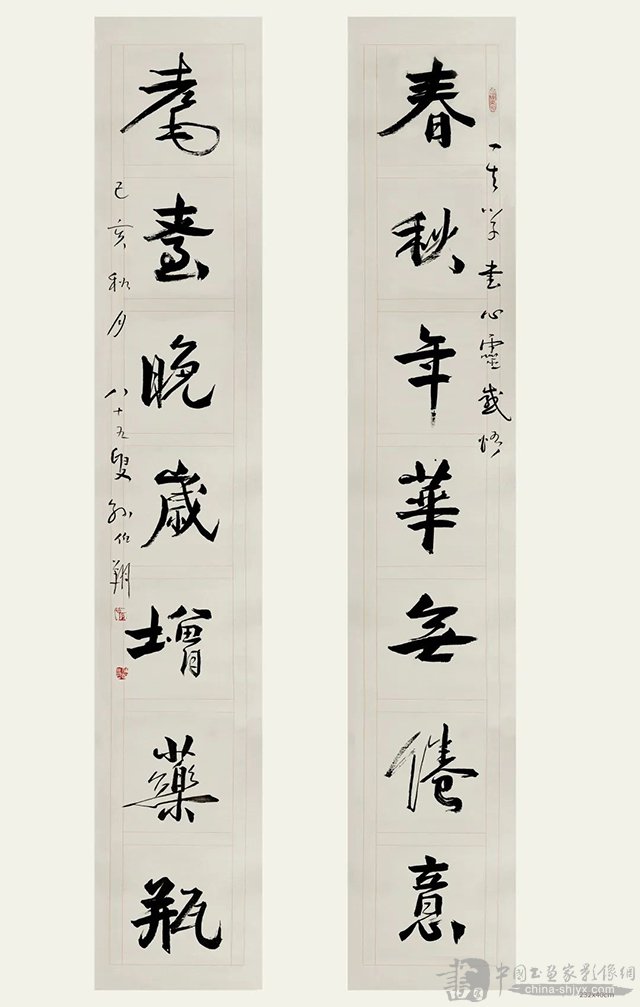 一生学書心靈感悟
春秋年華無倦意
耄耋晚歲增藥瓶
己亥秋月 八十五叟 孫伯翔
中國书画家影像網
china-shjyx.com
232x40cm